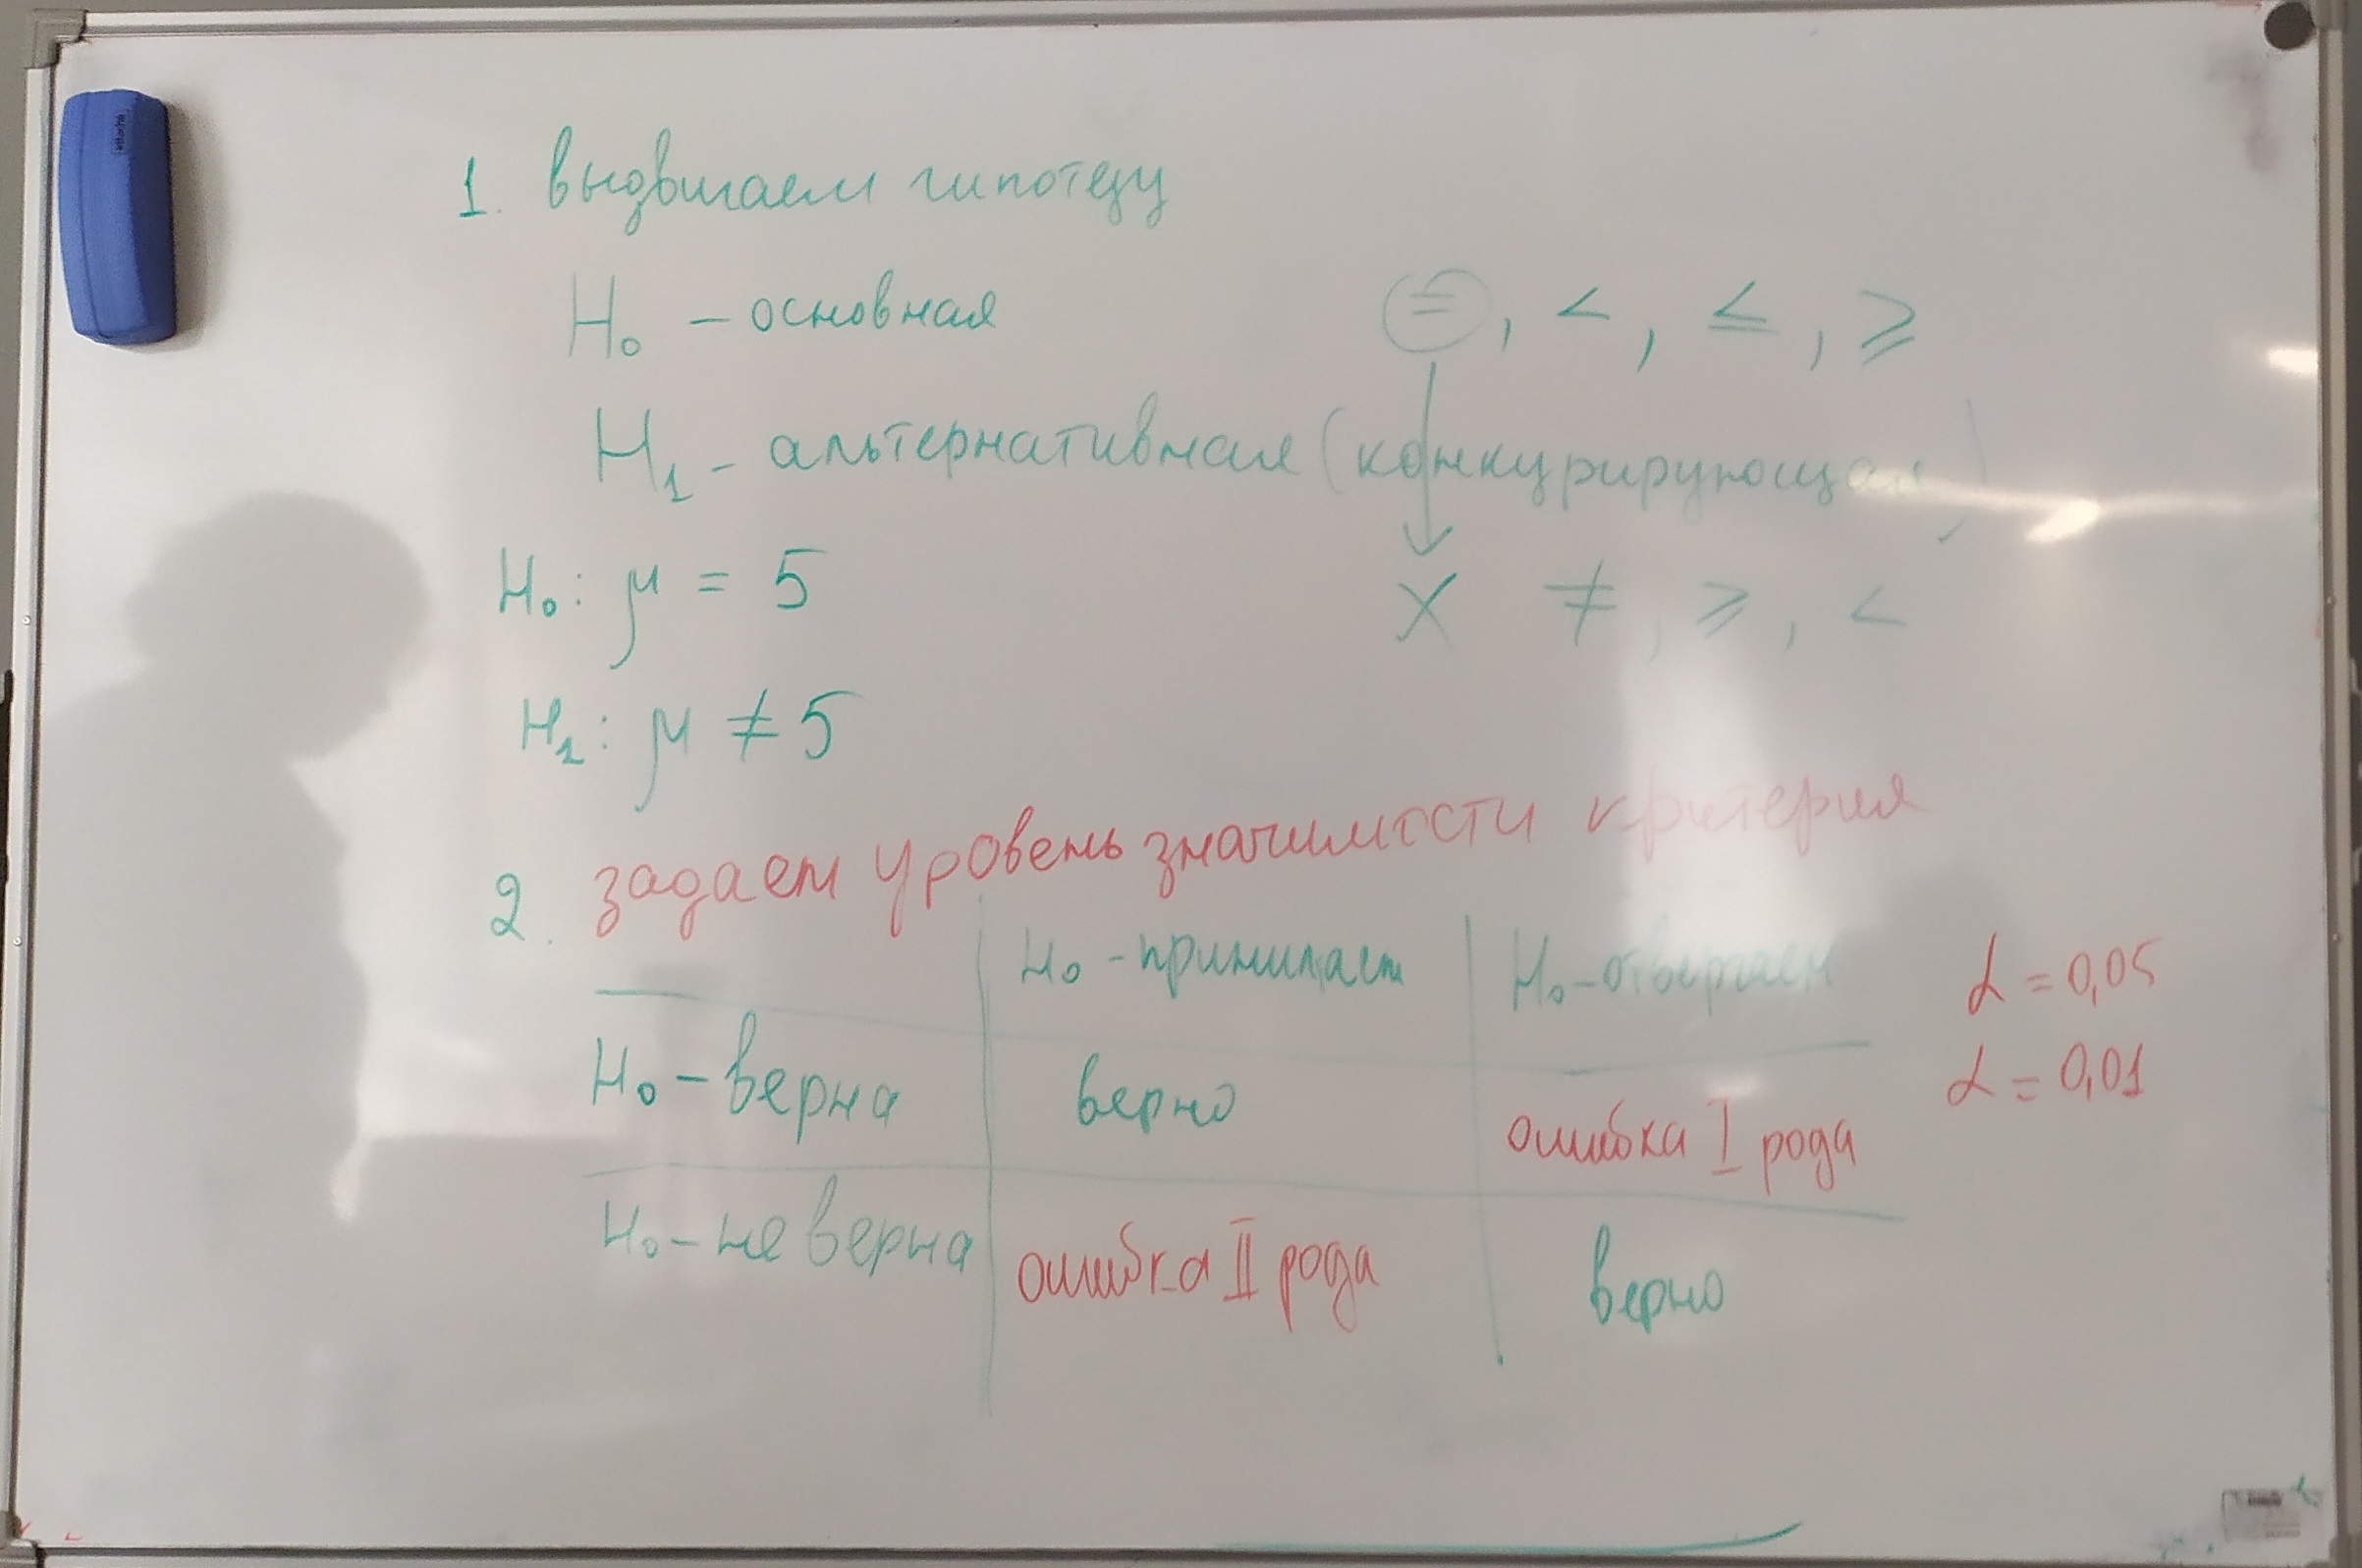 1. выдвигаем гипотезу
H₀ – основная
=, <, ≤, ⩾
H₁ – альтернативная (конкурирующая)
H₀: μ = 5
X ≠, ⩾, <
H₁: μ ≠ 5
2. задаем уровень значимости критерия
H₀ - принимаем
H₀ - отвергаем
α = 0,05
H₀ – верна
верно
ошибка I рода
α = 0,01
H₀ – не верна
ошибка II рода
верно